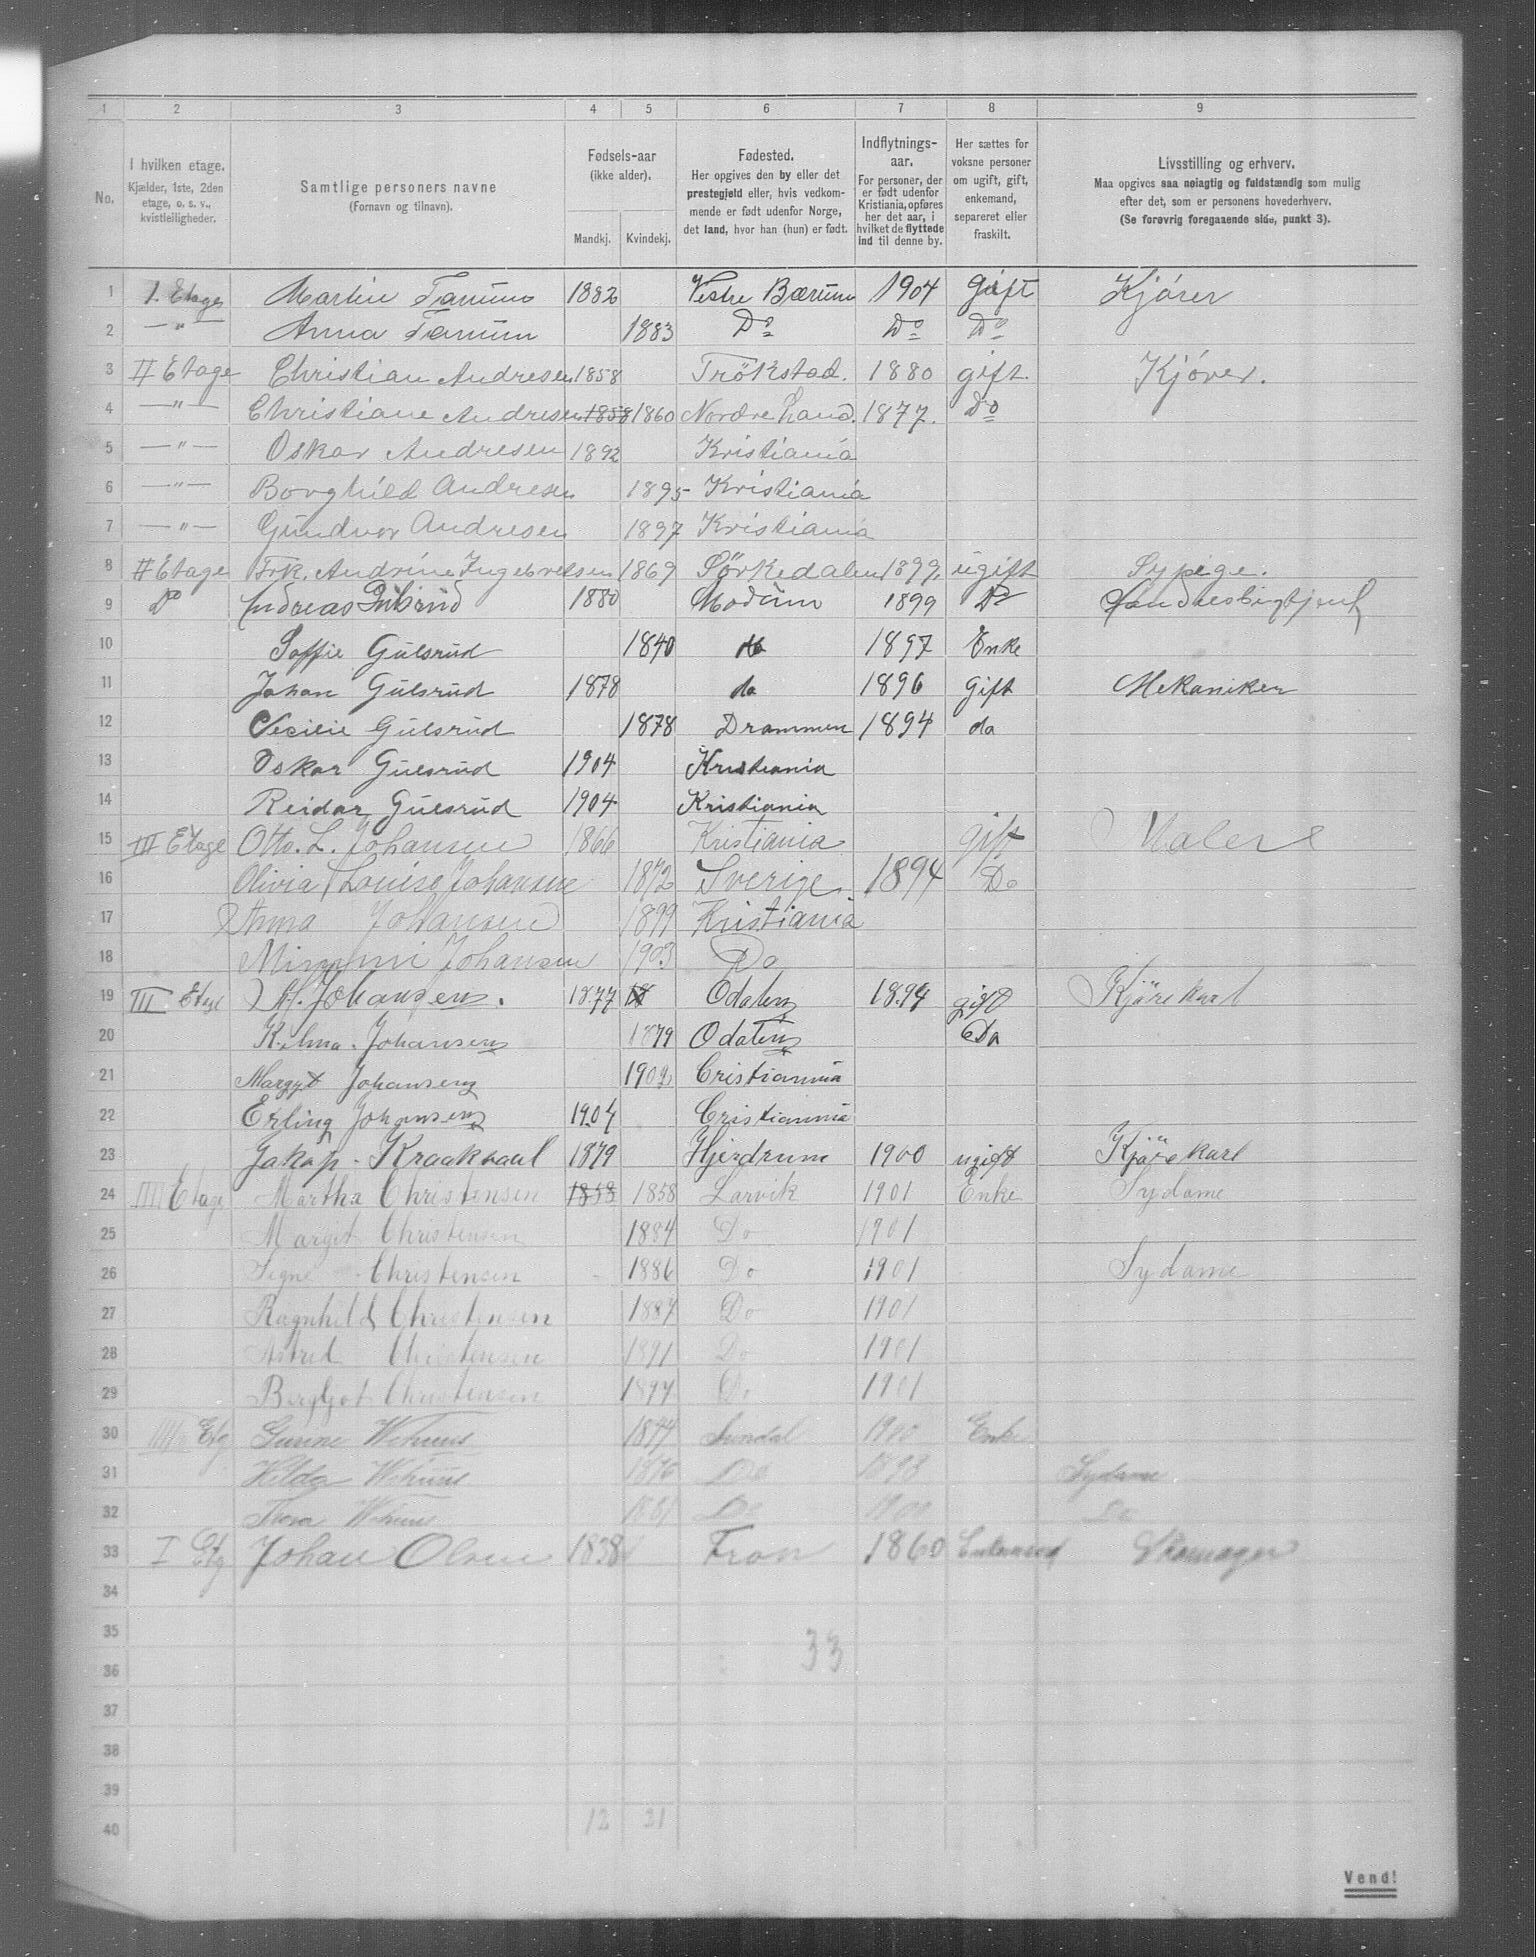 1 2 3 4 5 6 7 8 9
No. I hvilken etage. Kjælder, 1ste, 2den etage, o. s. v., kvistleiligheder. Samtlige personers navne (Fornavn og tilnavn). Fødsels-aar (ikke alder). Mandkj. Kvindekj. Fødested. Her opgives den by eller det prestegjeld eller, hvis vedkommende er født udenfor Norge, det land, hvor han (hun) er født. Indflytnings-aar. For personer, der er født udenfor Kristiania, opføres her det aar, i hvilket de flyttede ind til denne by. Her sættes for voksne personer om ugift, gift, enkemand, separeret eller fraskilt. Livsstilling og erhverv. Maa opgives saa nøiagtig og fuldstændig som mulig efter det, som er personens hovederhverv. (Se forøvrig foregaaende side, punkt 3).
1 1. Etage Martin Tanum 1882 Vestre Bærum 1904 gift Kjører
2 —"— Anna Tanum 1883 Do Do Do
3 II Etage Christian Andresen 1858 Trökstad. 1880 gift Kjörer.
4 —"— Christiane Andresen 1858 1860 Nordre Land. 1877. Do
5 —"— Oskar Andresen 1892 Kristiania
6 —"— Borghild Andresen 1895 Kristiania
7 —"— Gundvor Andresen 1897 Kristiania
8 II Etage Frk. Andrine Ingebretsen 1869 Sörkedalen 1899. ugift Sypige.
9 Do Andreas Gulsrud 1880 Modum 1899 Do
10 Soffie Gulsrud 1840 do 1897 Enke
11 Johan Gulsrud 1878 do 1896 gift Mekaniker
12 Cecilie Gulsrud 1878 Drammen 1894 do
13 Oskar Gulsrud 1904 Kristiania
14 Reidar Gulsrud 1904 Kristiania
15 III Etage Otto. L. Johansen 1866 Kristiania gift Maler
16 Olivia Louise Johansen 1872 Sverige 1894 Do
17 Anna Johansen 1899 Kristiania
18 Mimmi Johansen 1903 Do
19 III Etag H. Johansen. 1877 18 Odalen 1894 gift Kjörekarl
20 Johansen 1879 Odalen Do
21 Margyt Johansen 1902 Cristiannia
22 Erling Johansen 1904 Cristiannia
23 Jakop Kraakvaul 1879 Hjerdrum 1900 ugift Kjörekarl
24 IIII Etage Martha Christensen 1858 1858 Larvik 1901 Enke Sydame
25 Margit Christensen 1884 Do 1901
26 Signe Christensen 1886 Do 1901 Sydame
27 Ragnhild Christensen 1887 Do 1901
28 Astrid Christensen 1891 Do 1901
29 Bergljot Christensen 1894 Do 1901
30 Etg Gurine Wehuus 1844 Sundal 1900 Enke
31 Hilda Wehuus 1876 Do 1898 Sydame
32 Thora Wehuus 1881 Do 1900 Do
33 I Etg Johan Olsen 1838 Fron 1860 Enkemand Skomager
34
35
33
36
37
38
39
40 12 21
Vend!